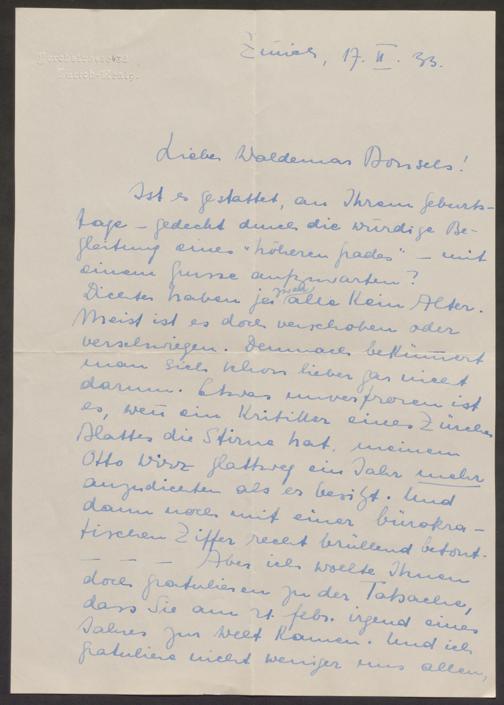 Zürich-Rehalp.
Zürich, 17. II. 33.
Lieber Waldemar Bonsels!
Ist es gestattet, an Ihrem Geburts-
tage – gedeckt durch die würdige Be-
gleitung eines "höheren Grades" – mit
einem Grusse aufzuwarten?
Dichter haben ja mehr alle kein Alter.
Meist ist es doch verschoben oder
verschwiegen. Demnach bekümmert
man sich schon lieber gar nicht
darum. Etwas unverfroren ist
es, wen ein Kritiker eines Zürcher
Blattes die Stirne hat, meinem
Otto Wirz glattweg ein Jahr mehr
anzudichten als er besitzt. Und
dann noch mit einer bürokra-
tischen Ziffer recht brüllend betont.
– – – Aber ich wollte Ihnen
doch gratulieren zu der Tatsache,
dass Sie am 21. Febr. irgend eines
Jahres zur Welt kamen. Und ich
gratuliere nicht weniger uns allen,